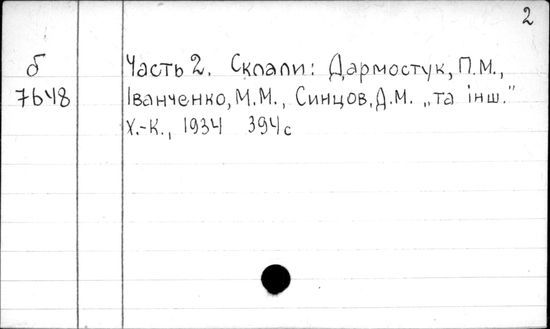 2
б
7648
Часть 2. Склали: Дармостук, П.М.,
Іванченко, М.М., Синцов, Д.М. „та інш."
Х.-К., 1934 394с